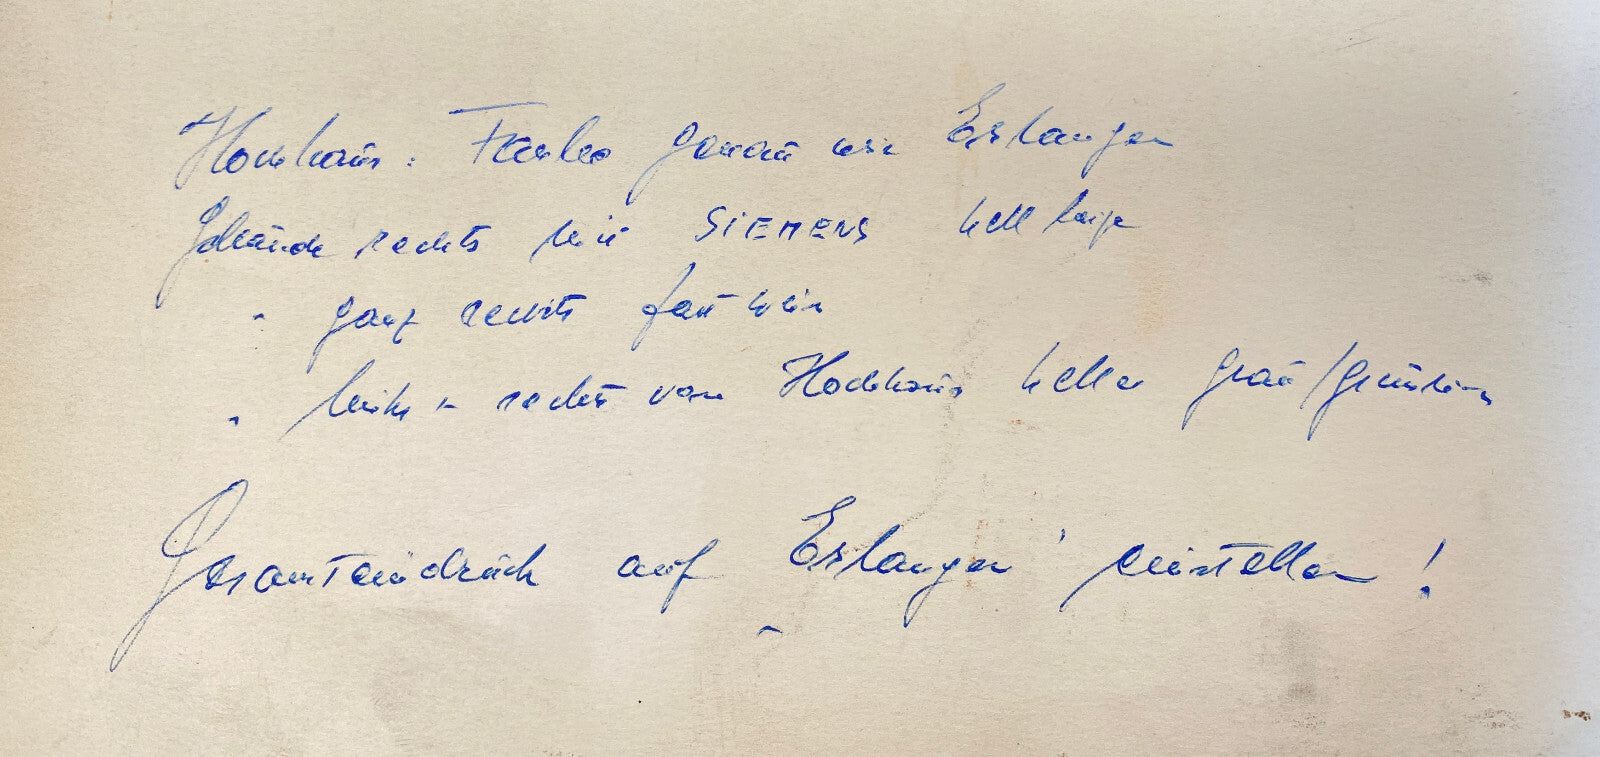 Hochhaus: Farbe genau wie Erlangen
Gebäude rechts mit SIEMENS hellbeige
" ganz rechts fast weiß
" links + rechts vom Hochhaus heller grau/grünlich
Gesamteindruck auf „Erlangen" einstellen!